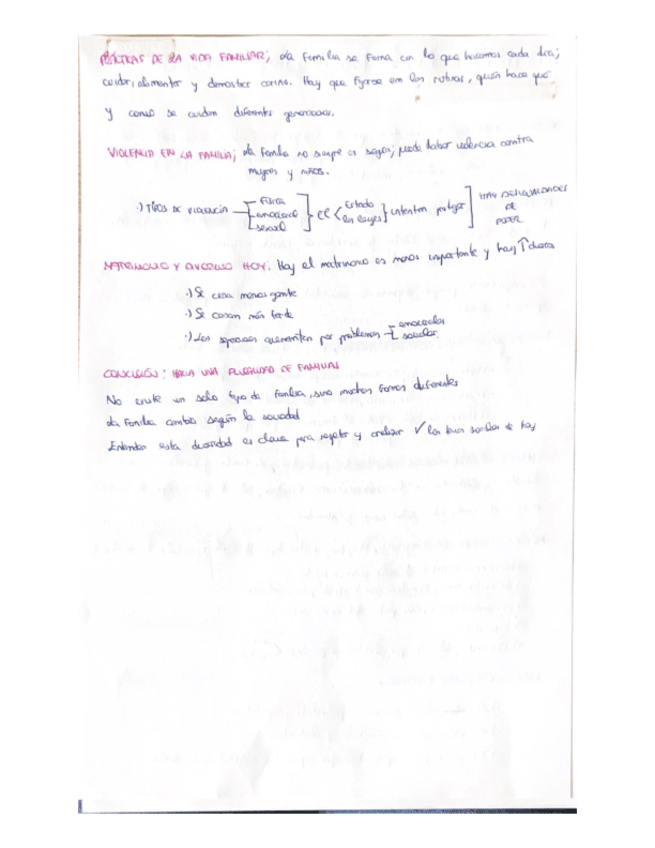 PRÁCTICAS DE LA VIDA FAMILIAR; La familia se forma con lo que hacemos cada día;
cuidar, alimentar y demostrar cariño. Hay que fijarse em las rutinas, quién hace qué
y como se cuidan diferentes generaciones.
VIOLENCIA EN LA FAMILIA; La familia no siempre es segura; puede haber violencia contra
mujeres y niños.
·) TIPOS DE VIOLENCIA física emocional sexual] El < Estado las leyes} intentan proteger] HAY DESIGUALDADES DE PODER
MATRIMONIO Y DIVORCIO HOY: Hoy el matrimonio es menos importante y hay ↑ divorcios
·) Se casa menos gente
·) Se casan más tarde
·) Las separaciones aumentan por problemas emocionales sociales
CONCLUSIÓN: HACIA UNA PLURALIDAD DE FAMILIAS
No existe un solo tipo de familia, sino muchas formas diferentes
La familia cambia según la sociedad
Entender esta diversidad es clave para respetar y analizar ✓ las sociales de hoy